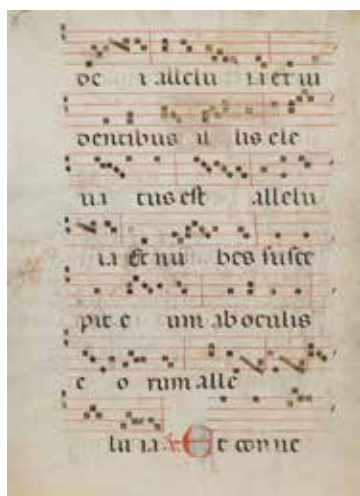 de i allelu ia et ui
dentibus il lis ele
ua tus est allelu
ia Et nu bes susce
pit e um ab oculis
e o rum alle
lu ia ℣ Et con ue